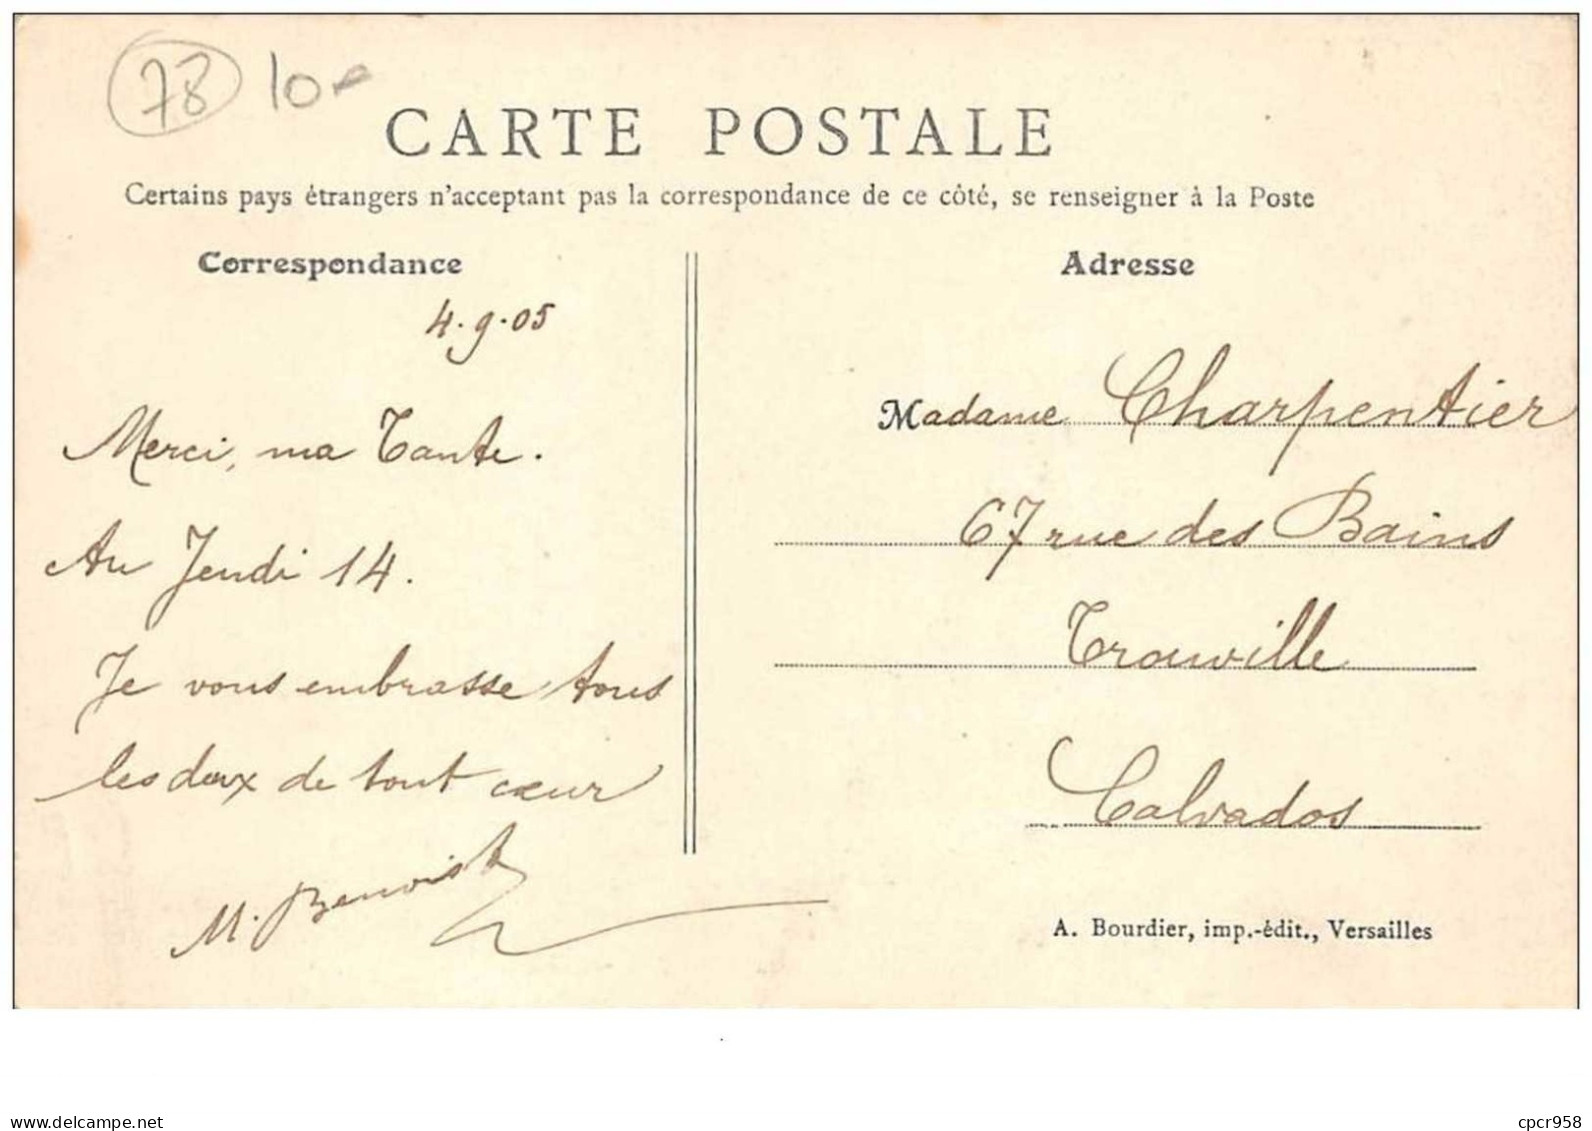 78 10
CARTE POSTALE
Certains pays étrangers n'acceptant pas la correspondance de ce côté, se renseigner à la Poste
Correspondance
4.9.05
Merci, ma Tante.
Au Jeudi 14.
Je vous embrasse tous
les deux de tout cœur
M. Benoist
Adresse
Madame Charpentier
67 rue des Bains
Trouville
Calvados
A. Bourdier, imp.-édit., Versailles
www.delcampe.net
cpcr958